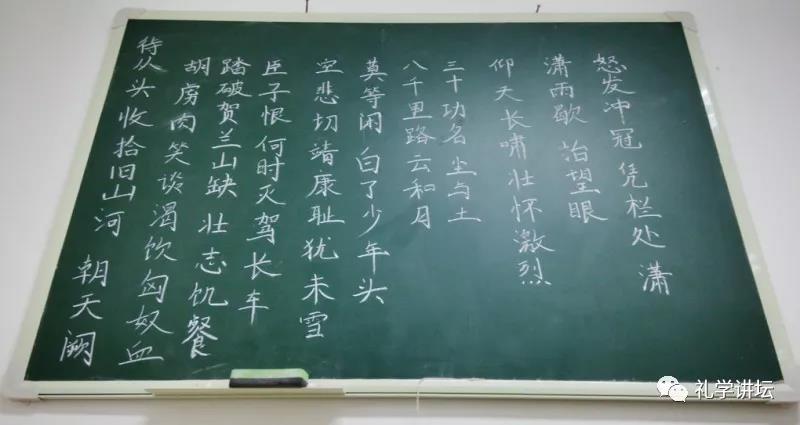 怒发冲冠 凭栏处 潇
潇雨歇 抬望眼
仰天长啸壮怀激烈
三十功名 尘与土
八千里路云和月
莫等闲 白了少年头
空悲切靖康耻犹未雪
臣子恨何时灭驾长车
踏破贺兰山缺 壮志饥餐
胡虏肉笑谈渴饮匈奴血
待从头收拾旧山河 朝天阙
礼学讲坛